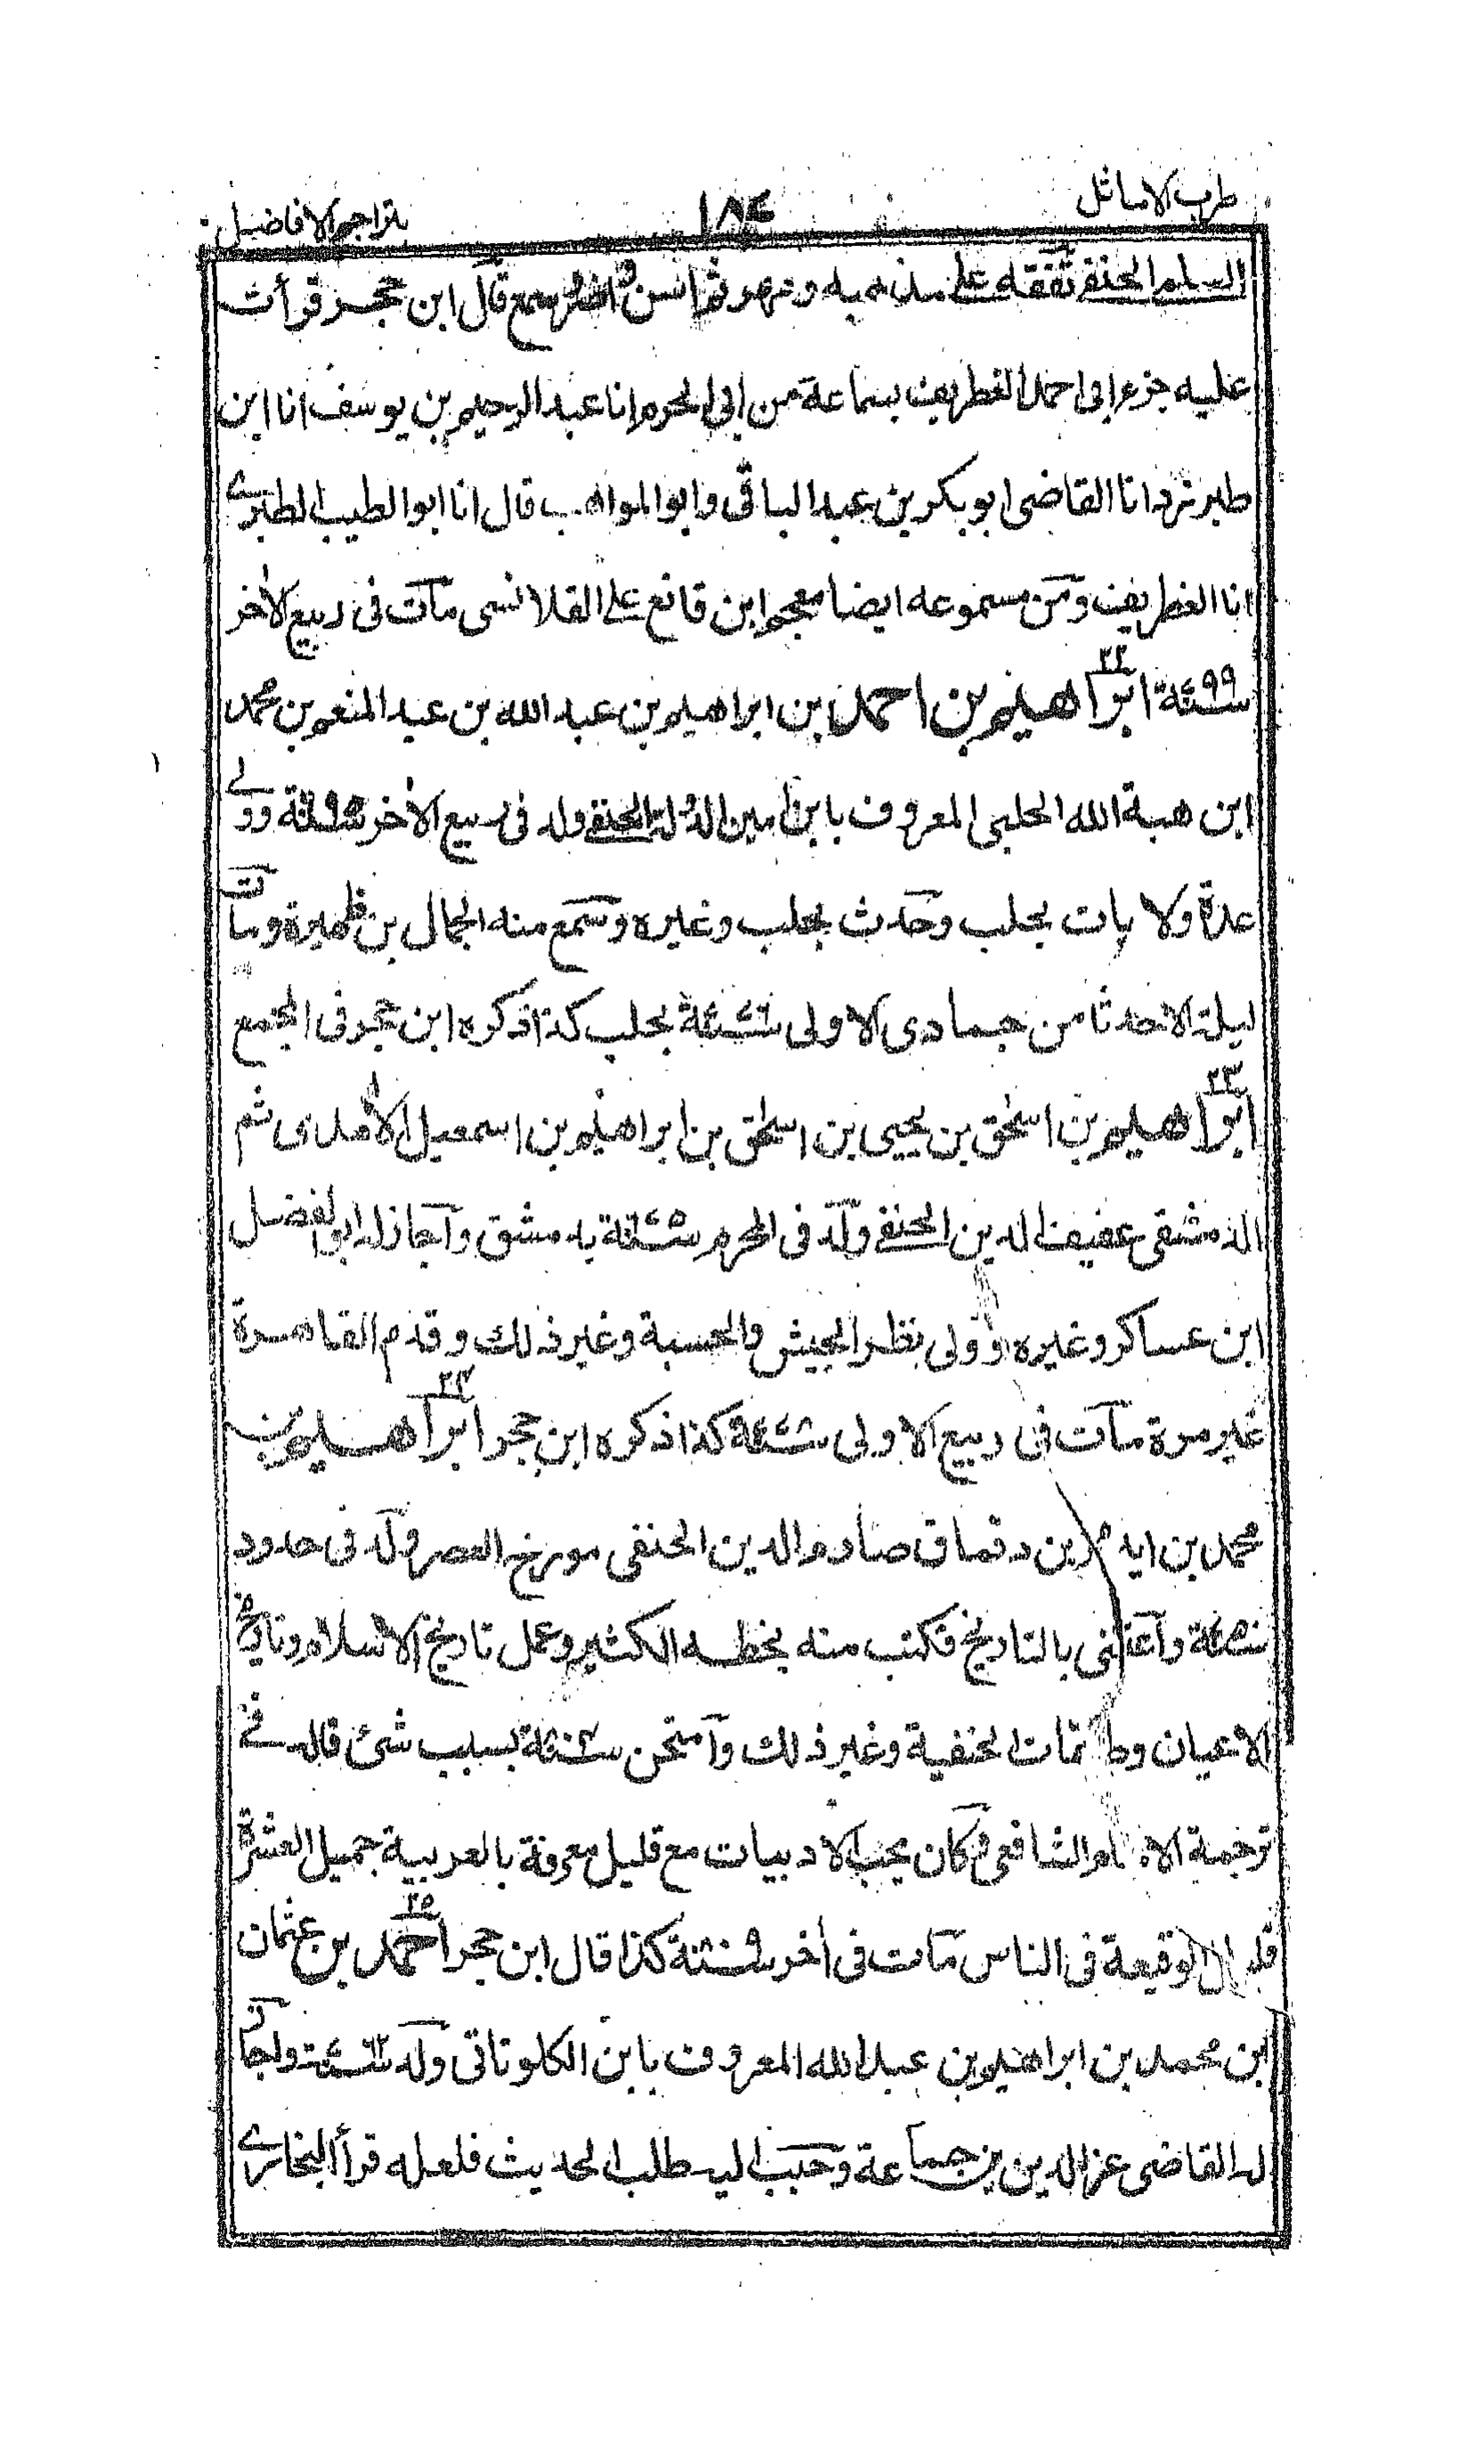 طرب الاماثل
١٨٤
بتراجم الافاضل
السلمى الحنفى تفقه على مذهبه ومهر ثم اسن وسمع قال ابن حجر قرأت
عليه جزء ابى احمد الغطريف بسماعة من ابى الحرم انا عبد الرحيم بن يوسف انا ابن
طبرزد انا القاضى ابو بكر بن عبد الباقى وابو المواهب قال انا ابو الطيب الطبرى
انا الغطريف ومن مسموعه ايضا معجم ابن قانع على القلانسى مات فى ربيع الآخر
سنة ٧٩٩ ٢٢ ابراهيم بن احمد بن ابراهيم بن عبد الله بن عبد المنعم بن محمد
ابن هبة الله الحلبى المعروف بابن امين الدولة الحنفى ولد فى ربيع الآخر سنة ٦٩٥ وولى
عدة ولايات بحلب وحدث بحلب وغيره وسمع منه الجمال بن ظهيرة ومات
ليلة الاحد ثامن جمادى الاولى سنة ٧٧٦ بحلب كذا ذكره ابن حجر فى المجمع
٢٣ ابراهيم بن اسحٰق بن يحيى بن اسحٰق بن ابراهيم بن اسمعيل الآمدى ثم
الدمشقى عفيف الدين الحنفى ولد فى المحرم سنة ٦٩٥ بدمشق واجاز له ابو الفضل
ابن عساكر وغيره وولى نظر الجيش والحسبة وغير ذلك وقدم القاهرة
غير مرة مات فى ربيع الاولى سنة ٧٧٨ كذا ذكره ابن حجر ٢٤ ابراهيم بن
محمد بن ايدمر بن دقماق صارم الدين الحنفى مورخ العصر ولد فى حدود
سنة ٧٥٠ واعتنى بالتاريخ فكتب منه بخطه الكثير وعمل تاريخ الاسلام وتاريخ
الاعيان وطبقات الحنفية وغير ذلك وامتحن سنة ٨٠٤ بسبب شئ قاله فى
ترجمة الامام الشافعى وكان يحب الادبيات مع قليل معرفة بالعربية جميل العشرة
قليل الوقيعة فى الناس مات فى آخر سنة ٨٠٩ كذا قال ابن حجر ٢٥ احمد بن عثمان
ابن محمد بن ابراهيم بن عبد الله المعروف بابن الكلوتاتى ولد سنة ٧٦٢ واجاز
له القاضى عز الدين بن جماعة وحبب اليه طلب الحديث فلعله قرأ البخارى